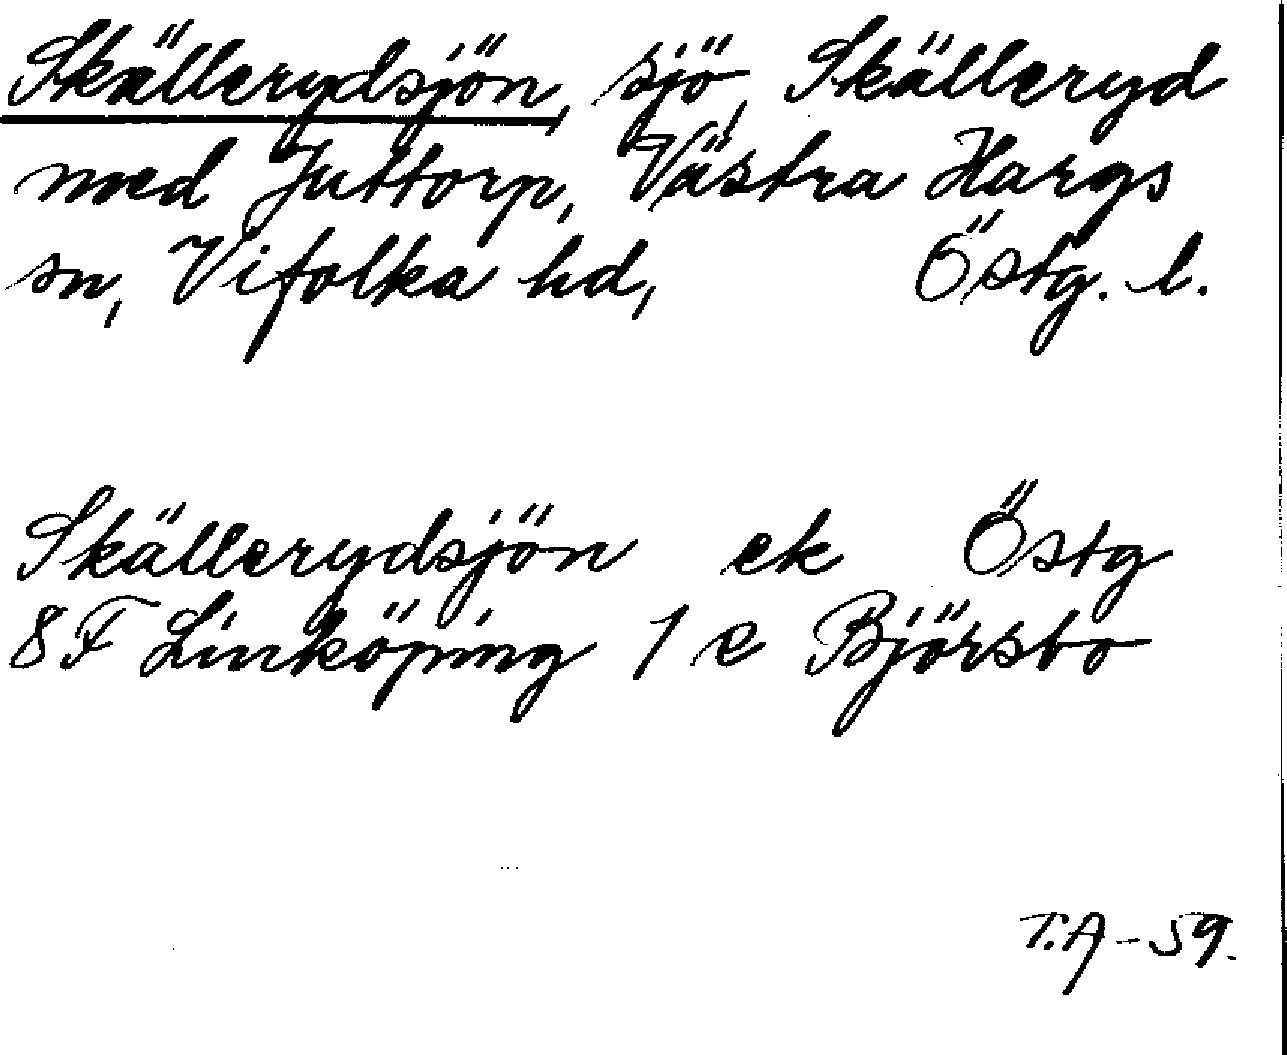 Skällerydsjön, sjö, Skälleryd
med Juttorp, Västra Hargs
sn, Vifolka hd, Östg. l.
Skällerydsjön ek Östg
8 F Linköping 1 e Björsbo
T.A - 59.